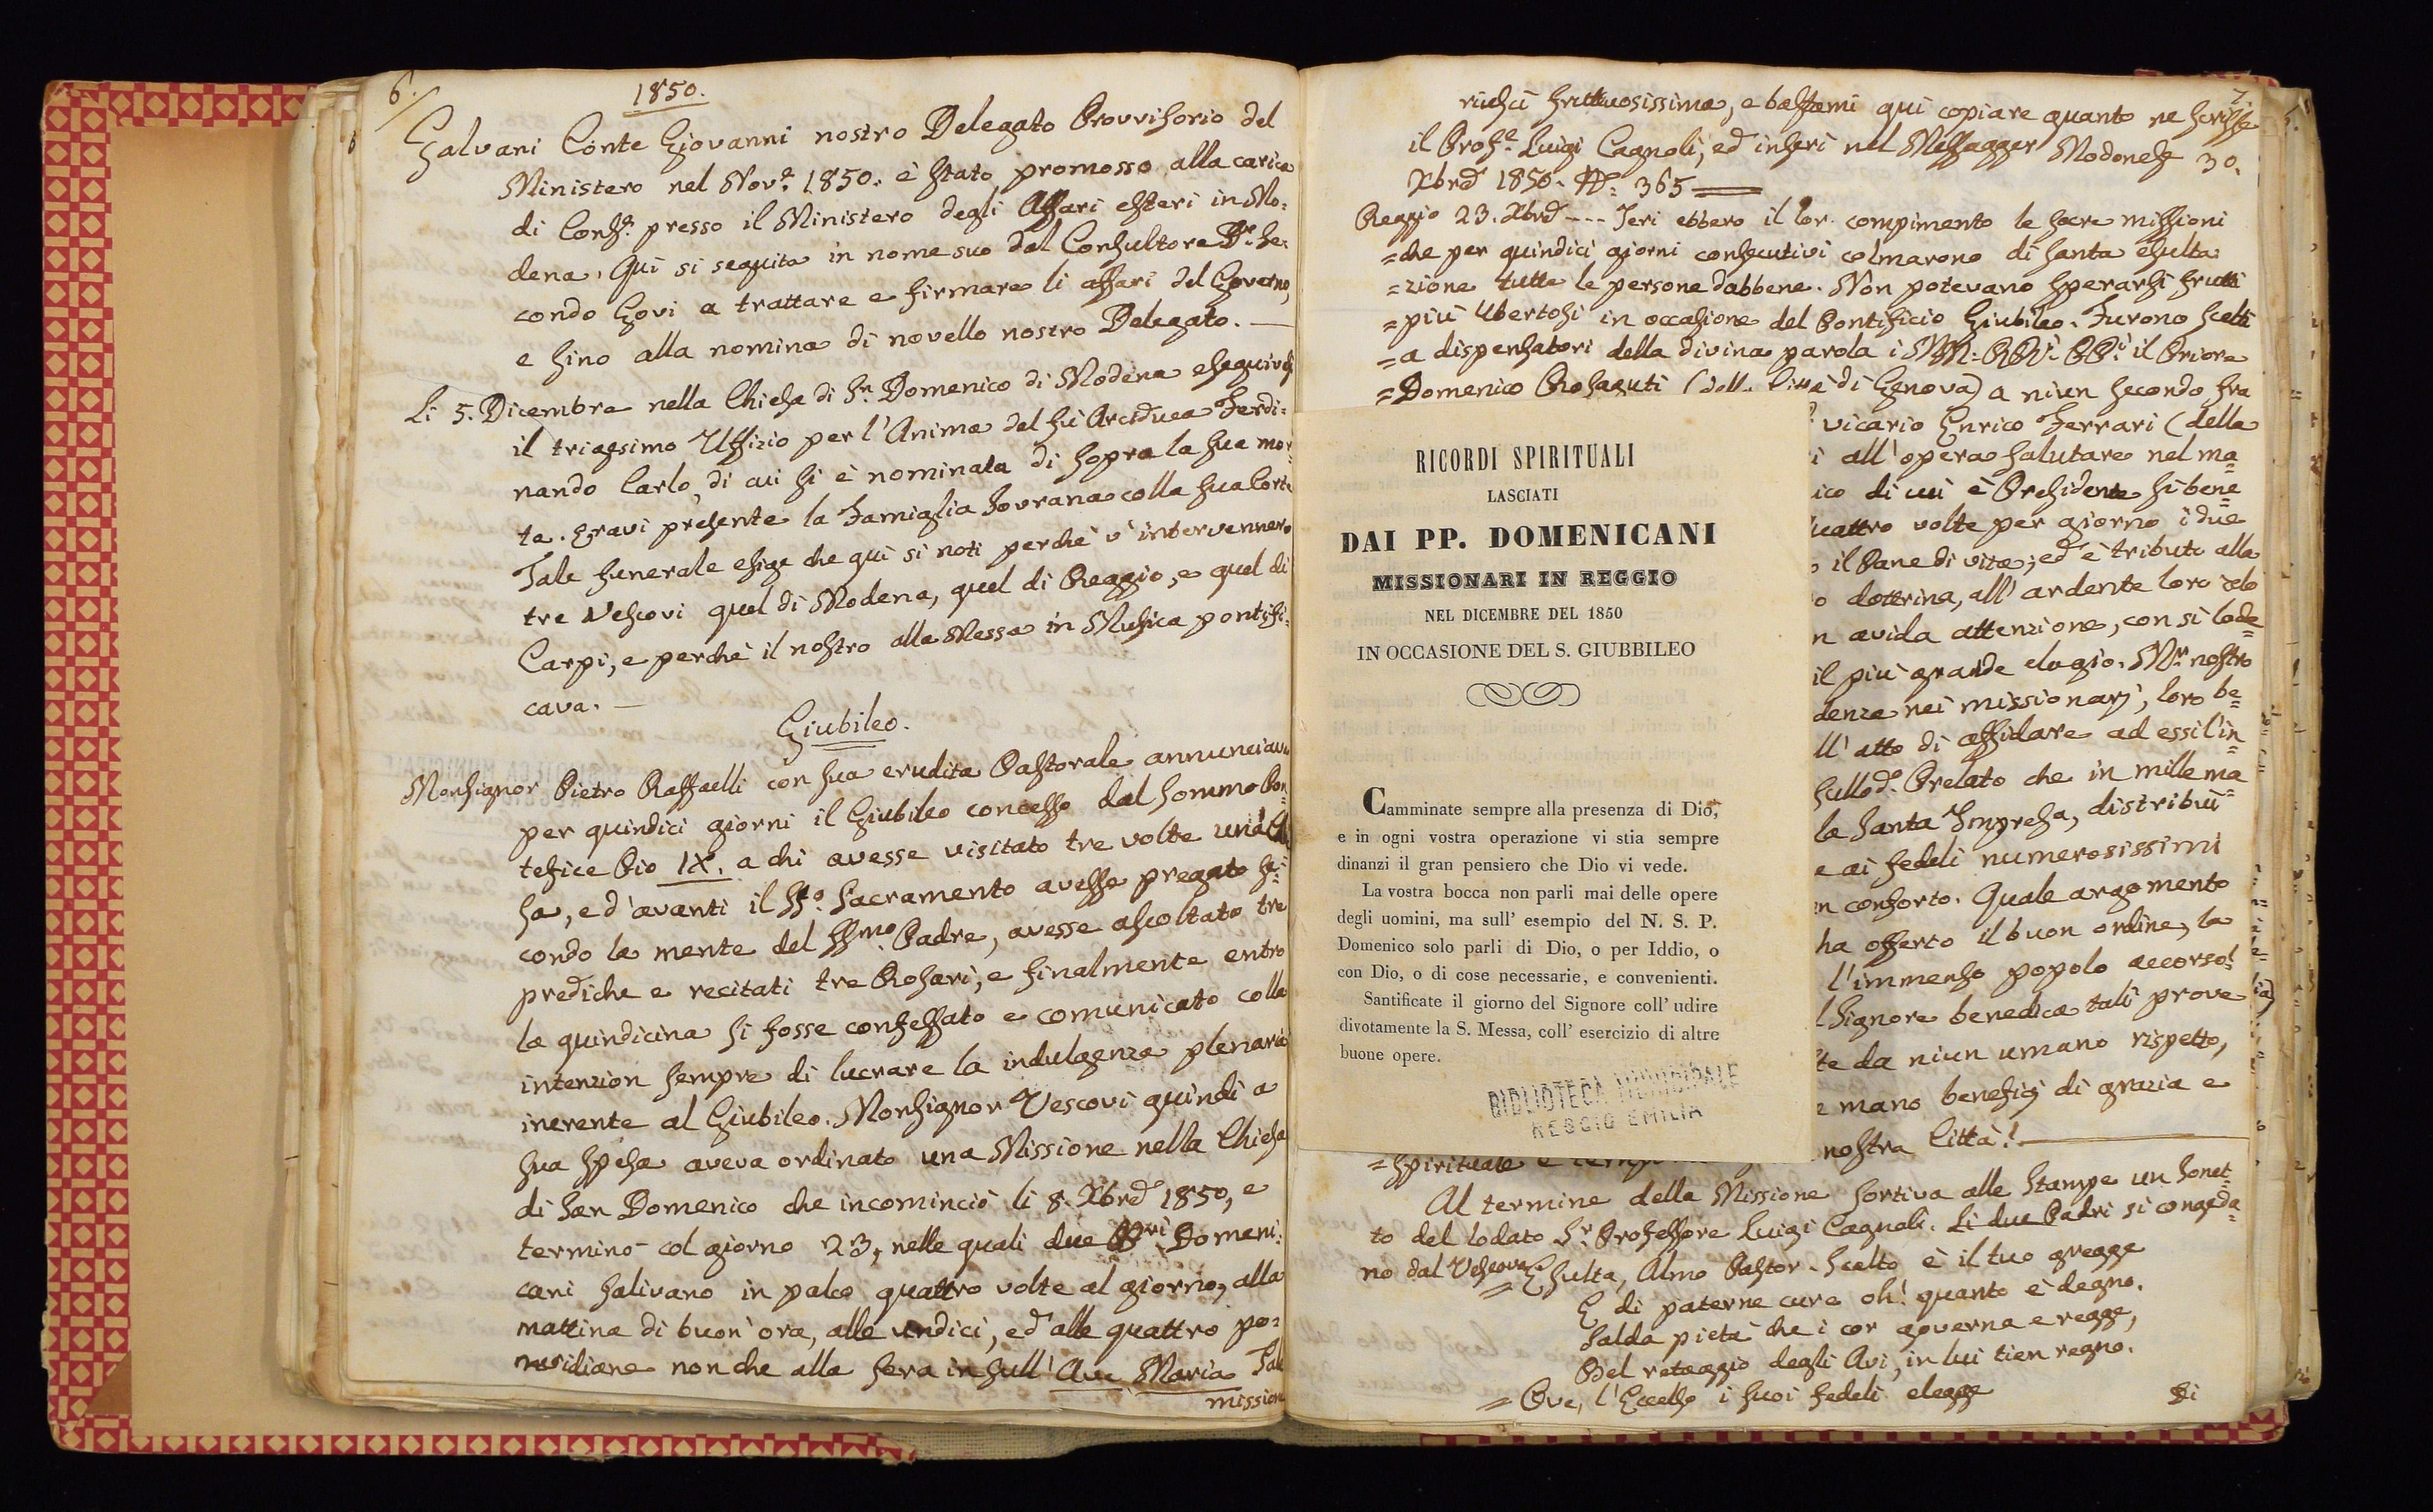 6.
1850.
Galvani Conte Giovanni nostro Delegato Provvisorio del
Ministero nel Nov.e 1850. è stato promosso alla carica
di Cons.e presso il Ministero degli Affari esteri in Mo=
dena. Qui si seguita in nome suo dal Consultore Dr. Se=
condo Govi a trattare e firmare li affari del Governo,
e sino alla nomina di novello nostro Delegato. —
Li 5. Dicembre nella Chiesa di Sn. Domenico di Modena eseguivasi
il trigesimo Uffizio per l'Anima del fù Arciduca Ferdi=
nando Carlo, di cui si è nominata di sopra la sua mor=
te. Eravi presente la Famiglia Sovrana colla sua Corte
Tale funerale esige che quì si noti perchè v'intervennero
tre Vescovi quel di Modena, quel di Reggio, e quel di
Carpi, e perchè il nostro alla Messa in Musica pontifi=
cava. —
Giubileo.
Monsignor Pietro Raffaelli con sua erudita Pastorale annunciava
per quindici giorni il Giubileo concesso dal Sommo Pon=
tefice Pio IX. a chi avesse visitato tre volte una Chie
sa, ed avanti il SSo. Sacramento avesse pregato se=
condo la mente del SSmo. Padre, avesse ascoltato tre
prediche e recitati tre Rosari, e finalmente entro
la quindicina si fosse confessato e comunicato colla
intenzion sempre di lucrare la indulgenza plenaria
inerente al Giubileo. Monsignor Vescovi quindi a
sua spesa aveva ordinato una Missione nella Chiesa
di San Domenico che incominciò li 8. Xbre 1850, e
terminò col giorno 23, nelle quali due PPri Domeni=
cani salivano in palco quattro volte al giorno, alla
mattina di buon'ora, alle undici, ed alle quattro po=
meridiane non che alla sera in sull'Ave Maria Tale
missione
7.
riuscì fruttuosissima, e bastami quì copiare quanto ne scrisse
il Profe. Luigi Cagnoli, ed inserì nel Messagger Modonese 30.
Xbre 1850. N°. 365
Reggio 23. Xbre --- Ieri ebbero il lor compimento le sacre missioni
=che per quindici giorni consecutivi colmarono di santa esulta
=zione tutte le persone dabbene. Non potevano sperarsi frutti
=più Ubertosi in occasione del Pontificio Giubileo. Furono scelti
=a dispensatori della divina parola i MM: RRi: PPi: il Priore
=Domenico Rosaguti (della Città di Genova) a niun secondo fra
vicario Enrico Ferrari (della
i all'opera salutare nel ma=
ico di cui è Presidente si bene=
uattro volte per giorno i due
il Pane di vita; ed è tributo alla
o dottrina, all'ardente loro zelo
n avida attenzione, con sì lode=
il più grande elogio. Mr. nostro
denza nei missionarj, loro be=
ll'atto di affidare ad essi l'in=
sullod. Prelato che in mille ma=
la Santa Impresa, distribuì
e ai fedeli numerosissimi
n conforto. Quale argomento
ha offerto il buon ordine, la
l'immenso popolo accorso!
l Signore benedica tali prove
te da niun umano rispetto,
e mano benefizj di grazia e
=spirituale e nostra Città! —
RICORDI SPIRITUALI
LASCIATI
DAI PP. DOMENICANI
MISSIONARI IN REGGIO
NEL DICEMBRE DEL 1850
IN OCCASIONE DEL S. GIUBBILEO
Camminate sempre alla presenza di Dio,
e in ogni vostra operazione vi stia sempre
dinanzi il gran pensiero che Dio vi vede.
La vostra bocca non parli mai delle opere
degli uomini, ma sull' esempio del N. S. P.
Domenico solo parli di Dio, o per Iddio, o
con Dio, o di cose necessarie, e convenienti.
Santificate il giorno del Signore coll' udire
divotamente la S. Messa, coll' esercizio di altre
buone opere.
BIBLIOTECA MUNICIPALE
REGGIO EMILIA
Al termine della Missione sortiva alle stampe un Sonet=
to del lodato Sr. Professore Luigi Cagnoli. Li due Padri si congeda=
no dal Vescovo
=Esulta, Almo Pastor. Scelto è il tuo gregge
E di paterne cure oh! quanto è degno.
Salda pietà che i cor governa e regge,
Bel retaggio degli Avi, in lui tien regno.
=Ove, l'Eccelso i suoi fedeli elegge
Di